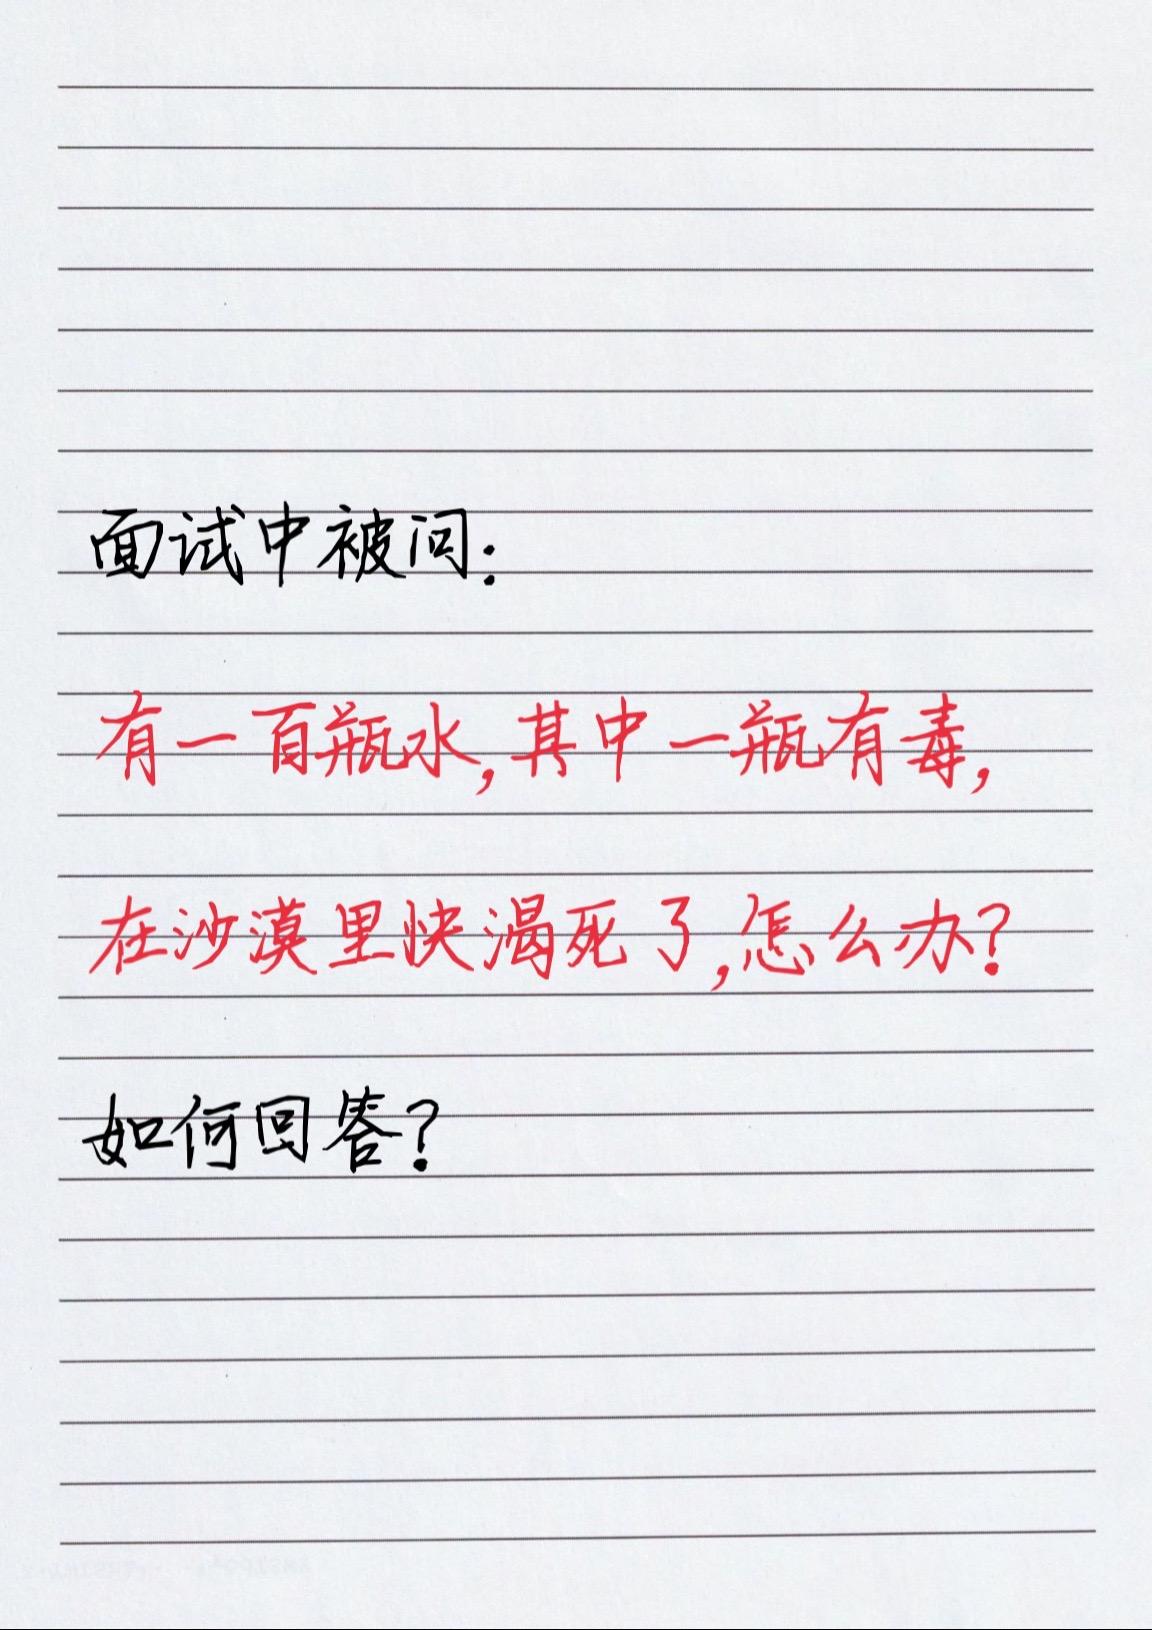 面试中被问:
有一百瓶水,其中一瓶有毒,
在沙漠里快渴死了,怎么办?
如何回答?